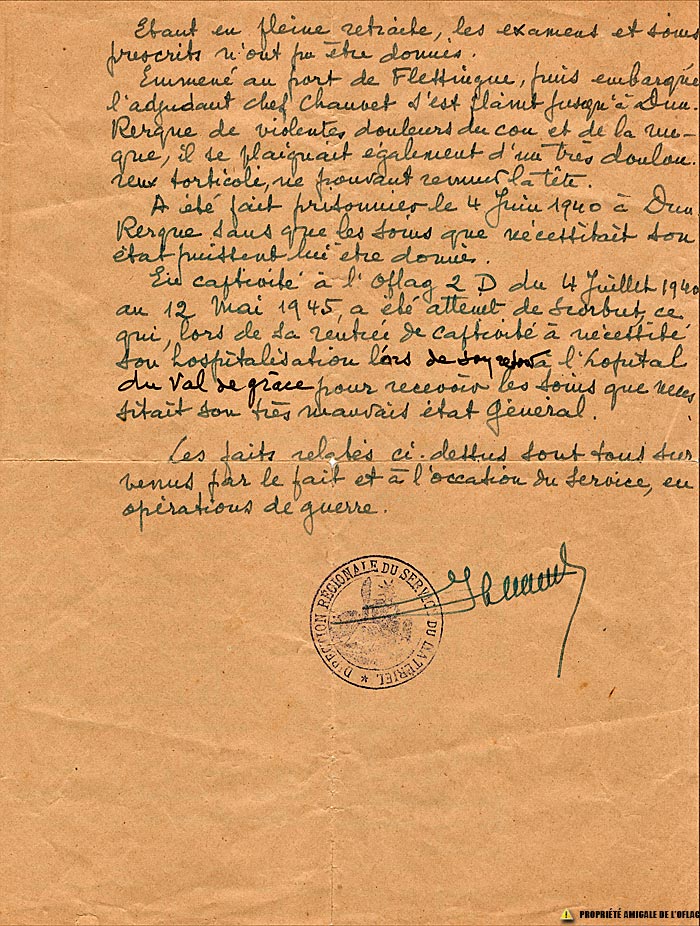 Etant en pleine retraite, les examens et soins
prescrits n'ont pu être donnés.
Emmené au port de Flessingue, puis embarqué
l'adjudant chef Chauvet s'est plaint jusqu'à Dun-
Kerque de violentes douleurs du cou et de la nu-
que, il se plaignait également d'un très doulou
reux torticoli, ne pouvant remuer la tête.
A été fait prisonnier le 4 Juin 1940 à Dun
Kerque sans que les soins que nécessitait son
état puissent lui être donnés.
En captivité à l'Oflag 2 D du 4 Juillet 1940
au 12 Mai 1945, a été atteint de Scorbut, ce
qui, lors de sa rentrée de captivité à nécessité
son hospitalisation lors de son retour à l'hopital
du Val de grâce pour recevoir les soins que néces
sitait son très mauvais état Général.
Les faits relatés ci-dessus sont tous sur
venus par le fait et à l'occasion du service, en
opérations de guerre.
DIRECTION RÉGIONALE DU SERVICE DU MATÉRIEL *
PROPRIÉTÉ AMICALE DE L'OFLAG